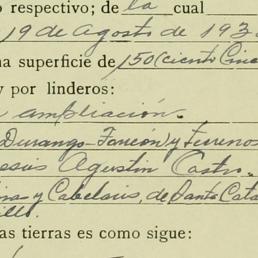 o respectivo; de la cual
19 de Agosto de 193
na superficie de 150 (ciento Cinc
y por linderos:
ampliación.
Durango-Torreón y Terrenos
esús Agustin Castro.
y Cabelaris, de Santa Cata
illo.
as tierras es como sigue: